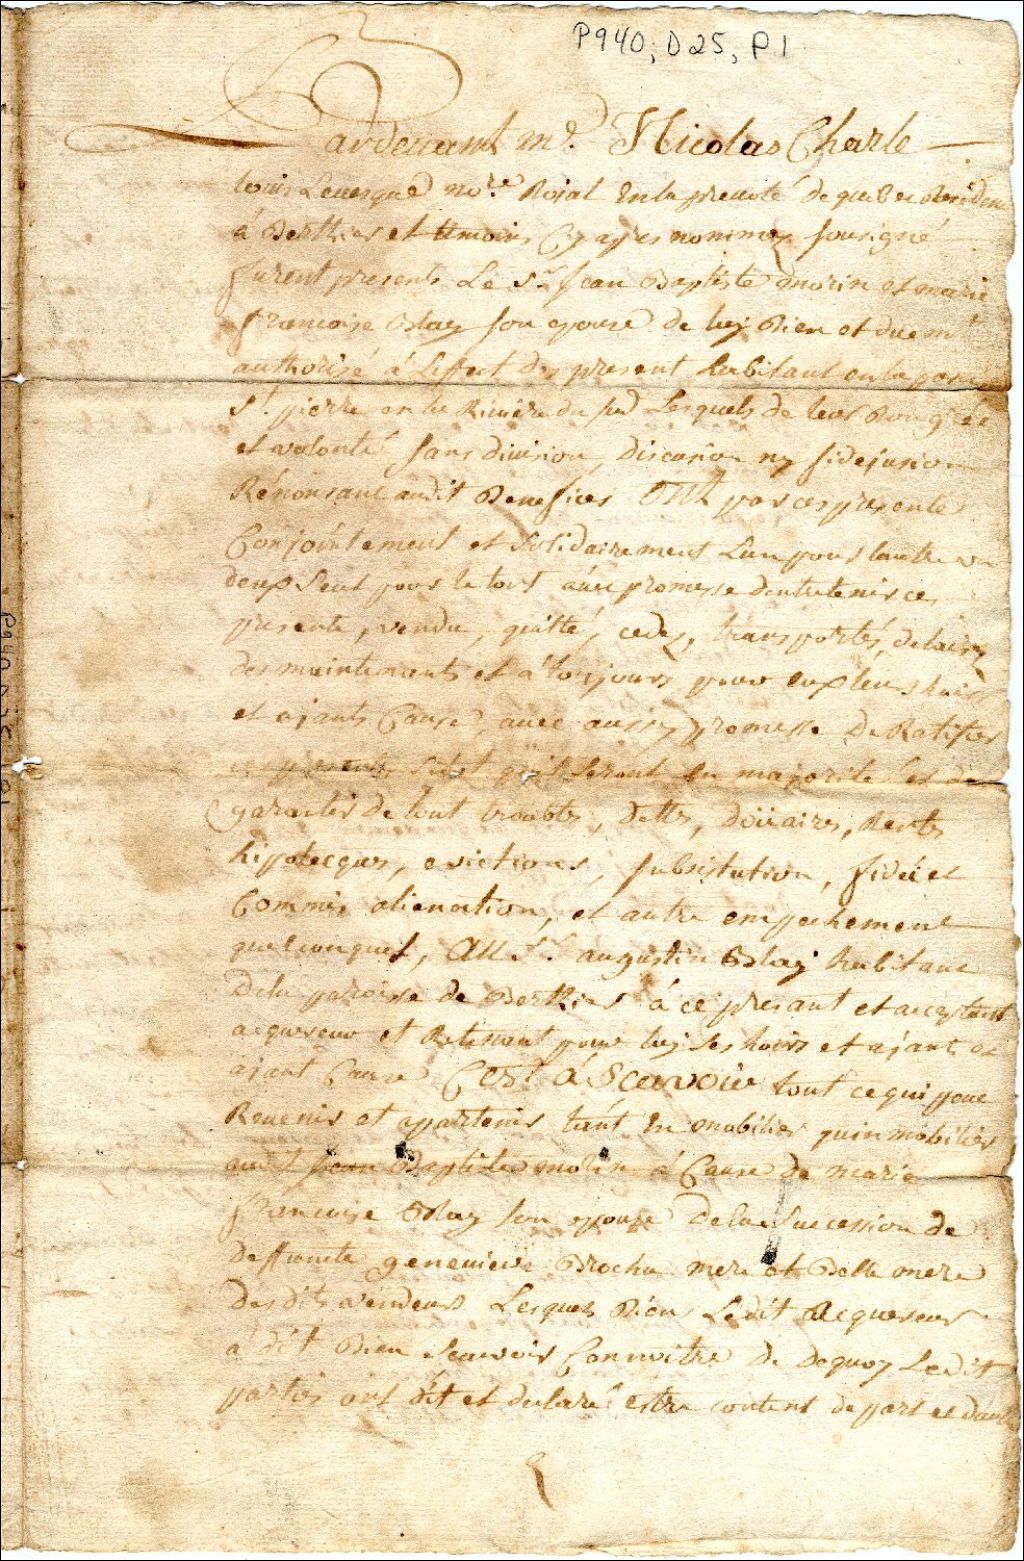 P940, D25, P1
Pardevant me. Nicolas Charle
louis Levesque nore. Roial En la prevoté de quebec Residen
à Berthier et temoins Cy apres nommez sousigné
furent presents Le Sr. Jean Baptiste morin et marie
francoise Blay son epouse de luy Bien et duemt
authorisé à Leffect des present habitant en la paroi
St. pierre en la Riviere du sud Lesquels de leur Bon gré
et volonté sans division, discusion ny fidejusion
Rénonsant audit Benefices Ont par ces presente
Conjointement et Solidairement Lun pour lautre un
deux Seul pour le tout avec promesse dentretenir ces
presente, vendu, quitté, cedez, transportés, delaissez
des maintenants et à toujours pour eux leurs hoirs
et ajants Cause, avec aussy promesse de Ratifier
ces presents sitot quil seront en majorité les de
garantir de tout troubles, dettes, doüaires, Rentes
hipotecques, evictions, substitution, fidéi et
Commis alienation, et autre empechement
quelconques, Au Sr. augustin Blay habitant
De la paroisse de Berthier à ce present et acceptant
acquereur et Retenant pour luy ses hoirs et ajants
ajant Cause C'est à Scavoir tout ce qui peut
Revenir et apartenir tant En mobilier quinmobilier
audt Jean Baptiste morin à Cause de marie
francoise Blay son epouse De la Succession de
deffuncte genevieve Brochu mere et Belle mere
Des dits vendeurs Lesquels Biens Ledit Acquereur
à dit Bien scavoir Connoitre De dequoy Ledit
parties ont dit et declaré estre content de part et dautre
P940, D25, P1